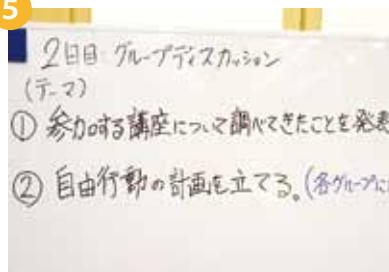 5
2日目 グループディスカッション
(テーマ)
① 参加する講座について調べてきたことを発表
② 自由行動の計画を立てる。(各グループに